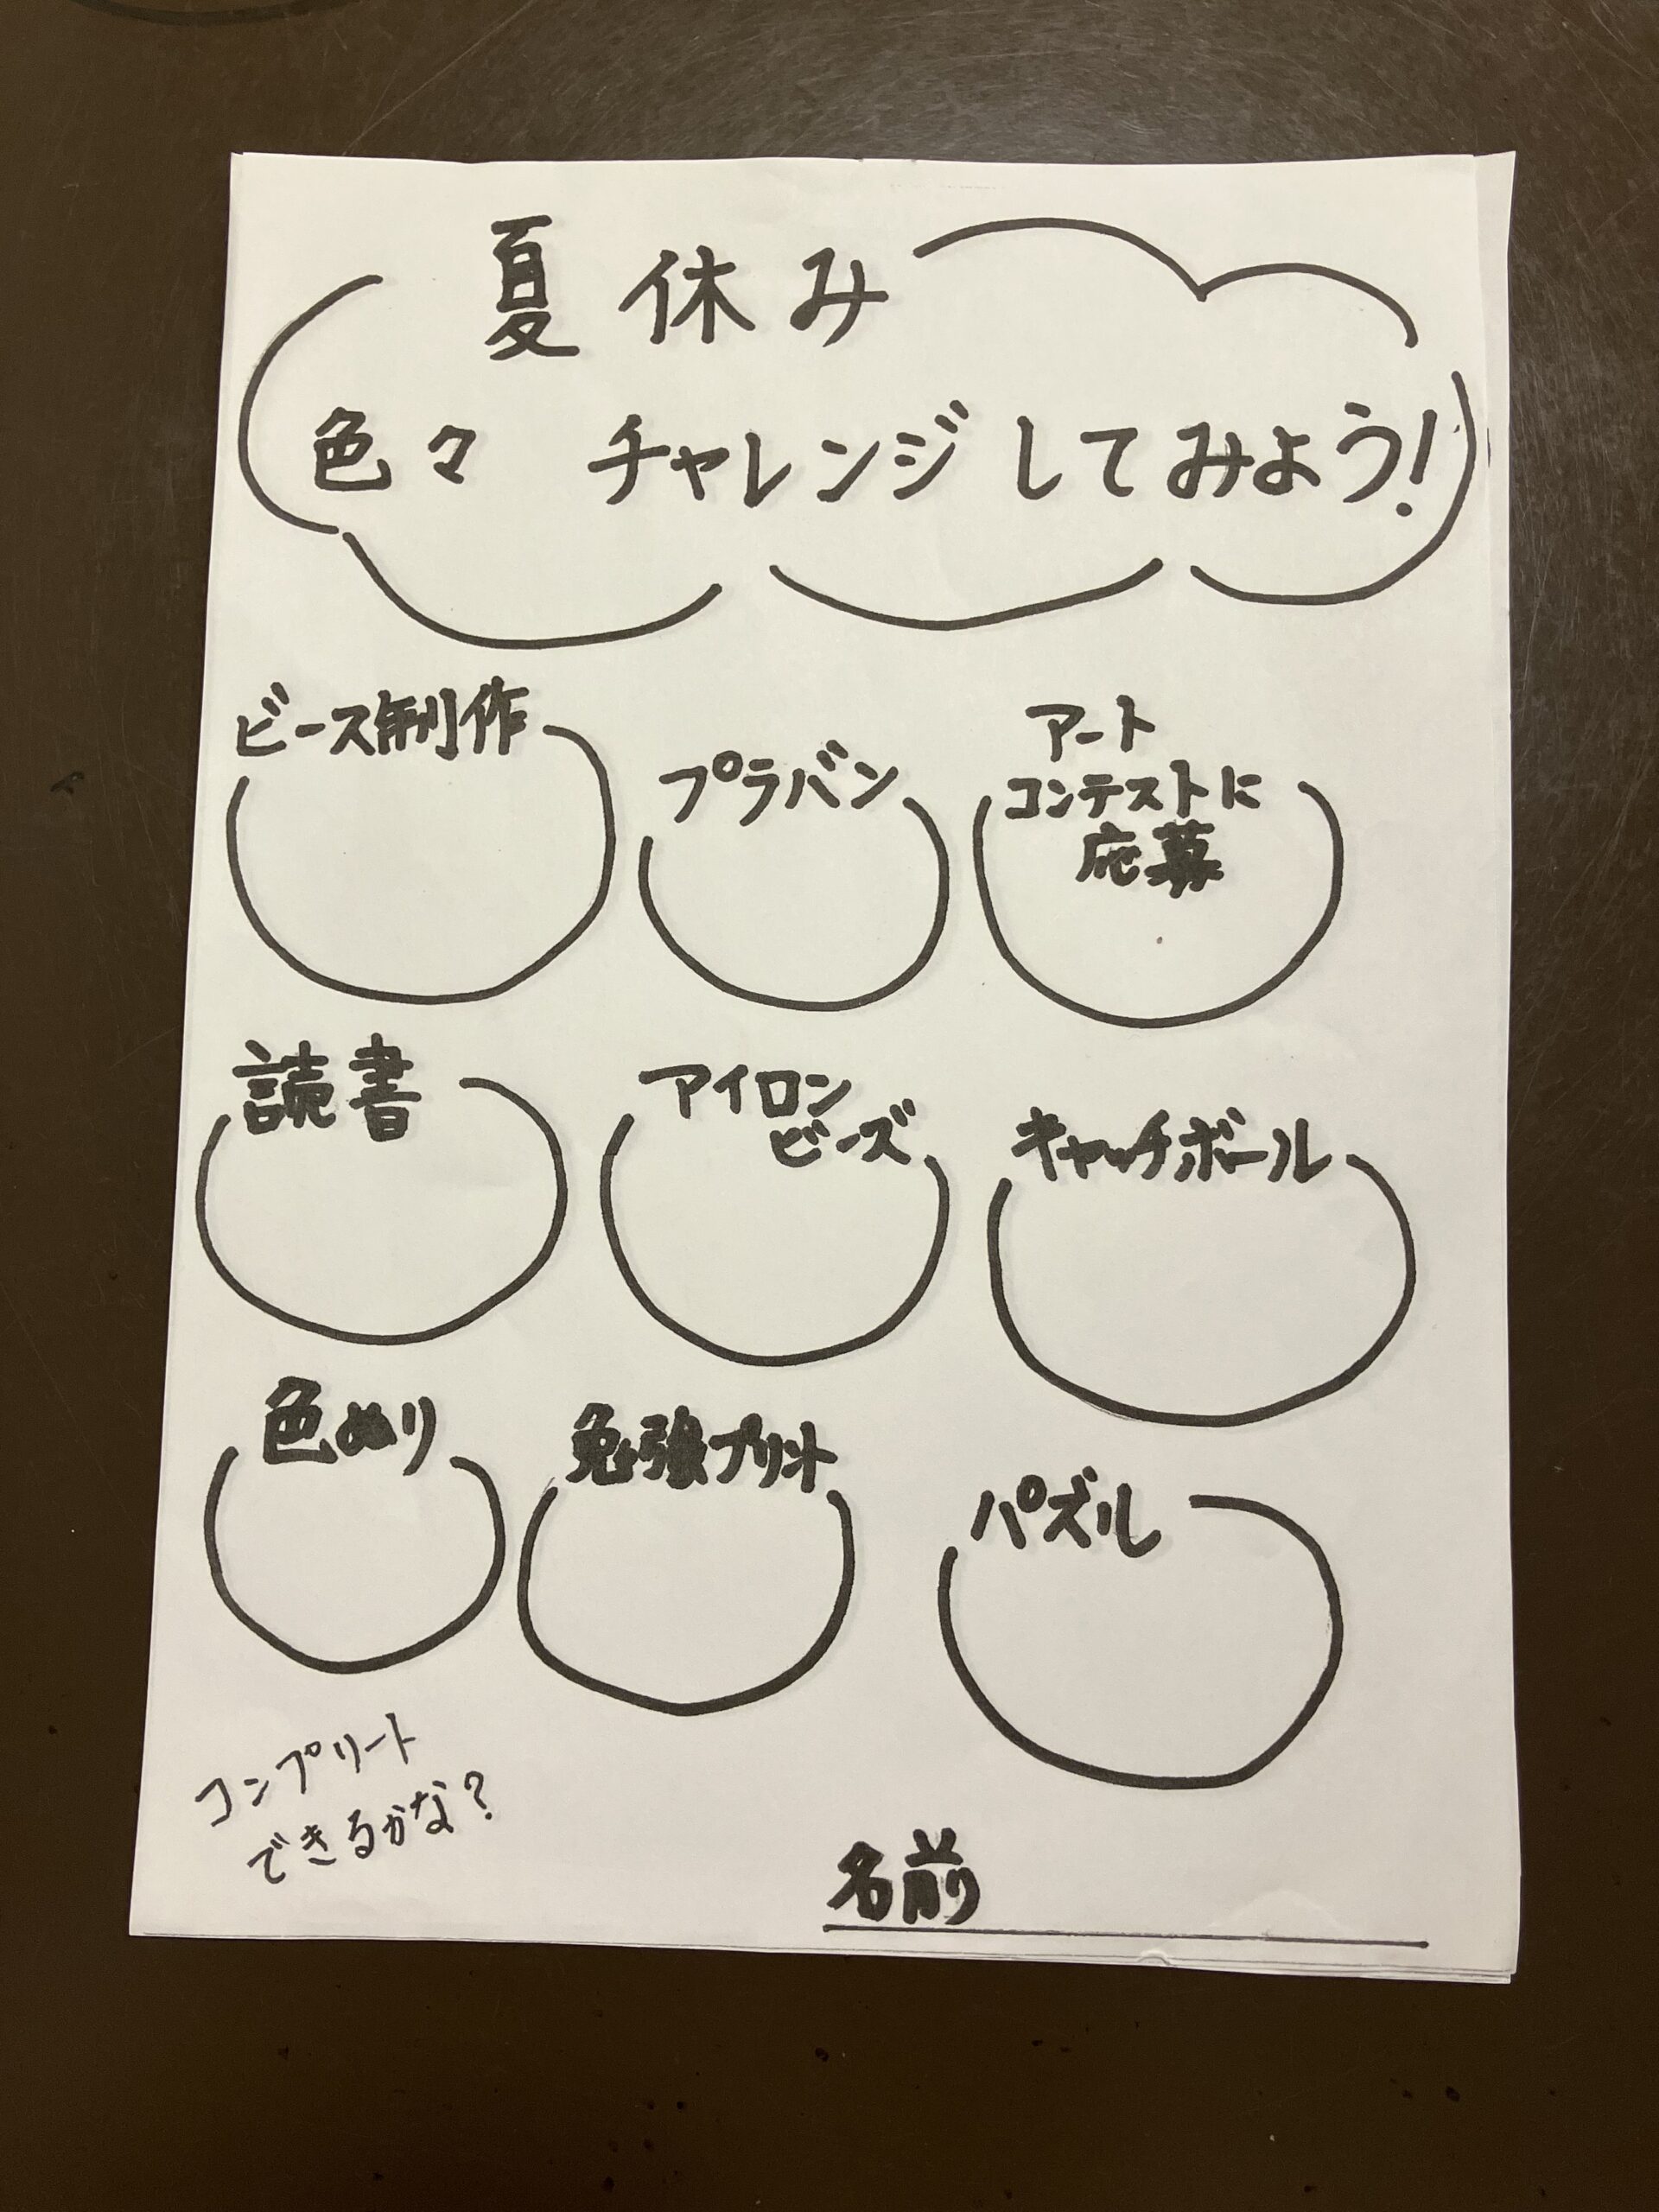 夏休み
色々 チャレンジしてみよう!
ビース制作
プラバン
アート
コンテストに
応募
読書
アイロン
ビーズ
キャッチボール
色ぬり
勉強プリント
パズル
コンプリート
できるかな?
名前